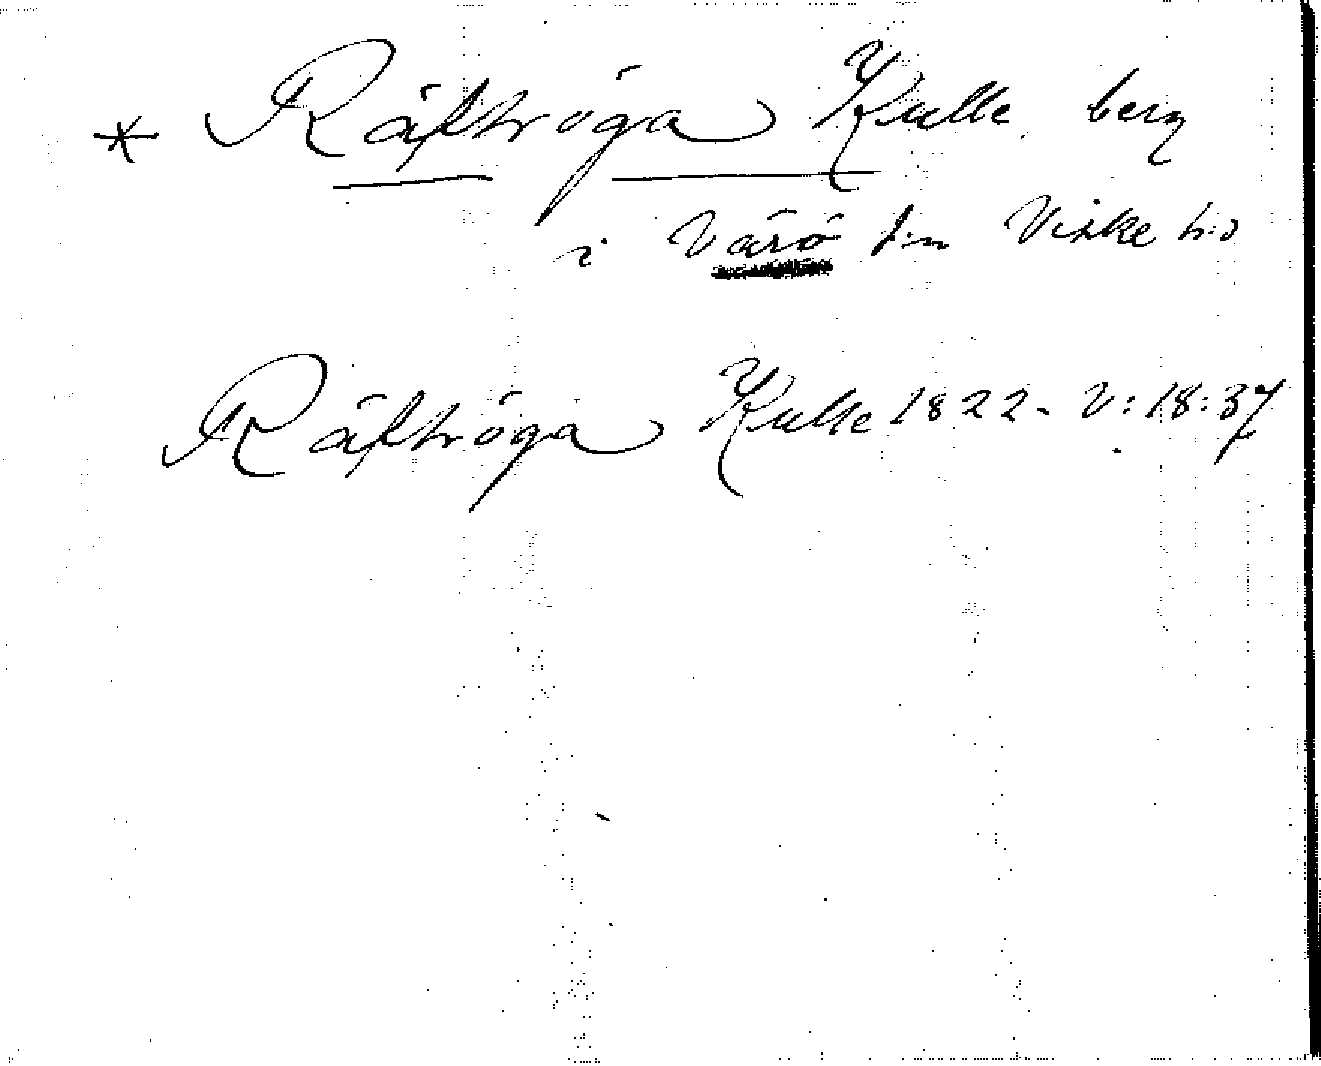 * Räfhröga Kulle berg
i Värö s:n Viske h:d
Räfhröga Kulle 1822. V:18:37